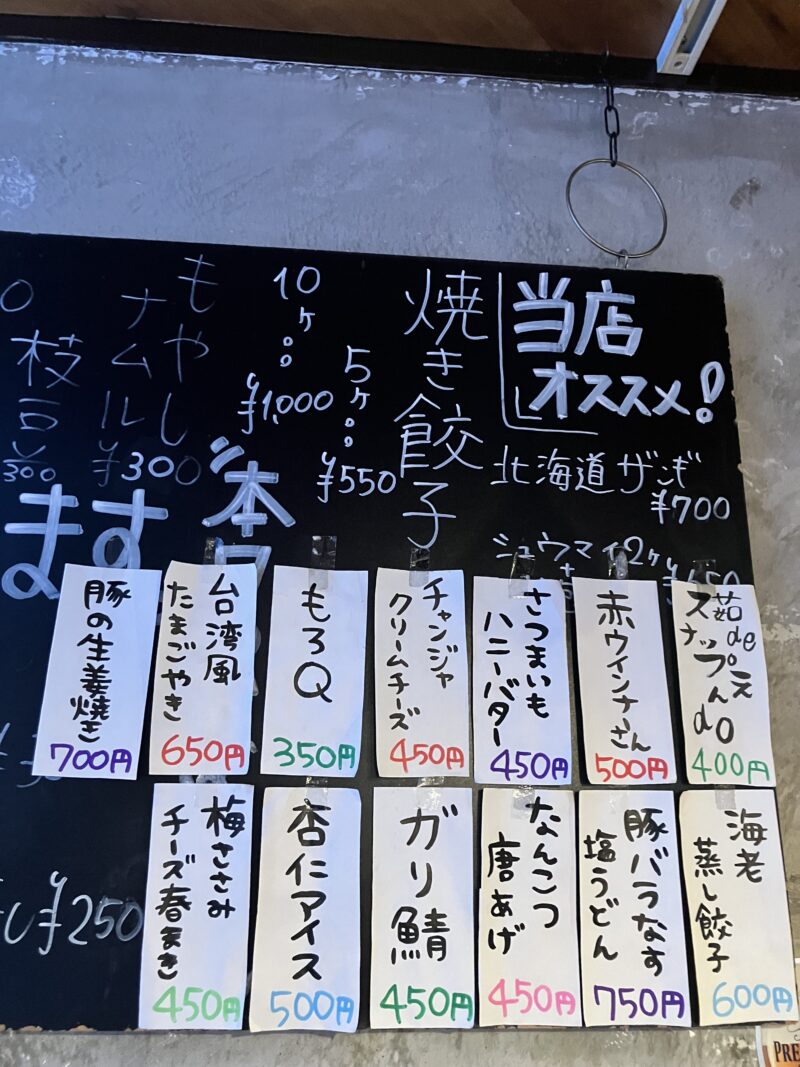 当店
オススメ!
北海道ザンギ
¥700
シュウマイ2ヶ
焼き餃子
5ヶ
¥550
10ヶ
¥1,000
もやし
ナムル
¥300
枝豆
¥300
ます
本
¥250
茹de
スナップえんdo
400円
赤ウインナーさん
500円
さつまいも
ハニーバター
450円
チャンジャ
クリームチーズ
450円
もろQ
350円
台湾風
たまごやき
650円
豚の生姜焼き
700円
海老
蒸し餃子
600円
豚バラなす
塩うどん
750円
なんこつ
唐あげ
450円
ガリ鯖
450円
杏仁アイス
500円
梅ささみ
チーズ春まき
450円